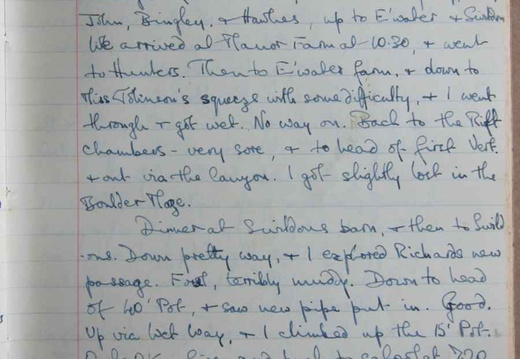 John, Bingley, & Hawkes, up to E'water & Swildon
We arrived at Manor Farm at 10.30, & went
to Hunters. Then to E'water farm, & down to
Miss Tomlinson's squeeze with some difficulty, & I went
through & got wet. No way on. Back to the Rift
chambers – very sore, & to head of first Vert.
& out via the canyon. I got slightly lost in the
Boulder Maze.
Dinner at Swildons barn, & then to Swild
-ons. Down pretty way, & I explored Richards new
passage. Foul, terribly muddy. Down to head
of 40' Pot, & saw new pipe put in. Good.
Up via Wet Way, & I climbed up the 15' Pot.